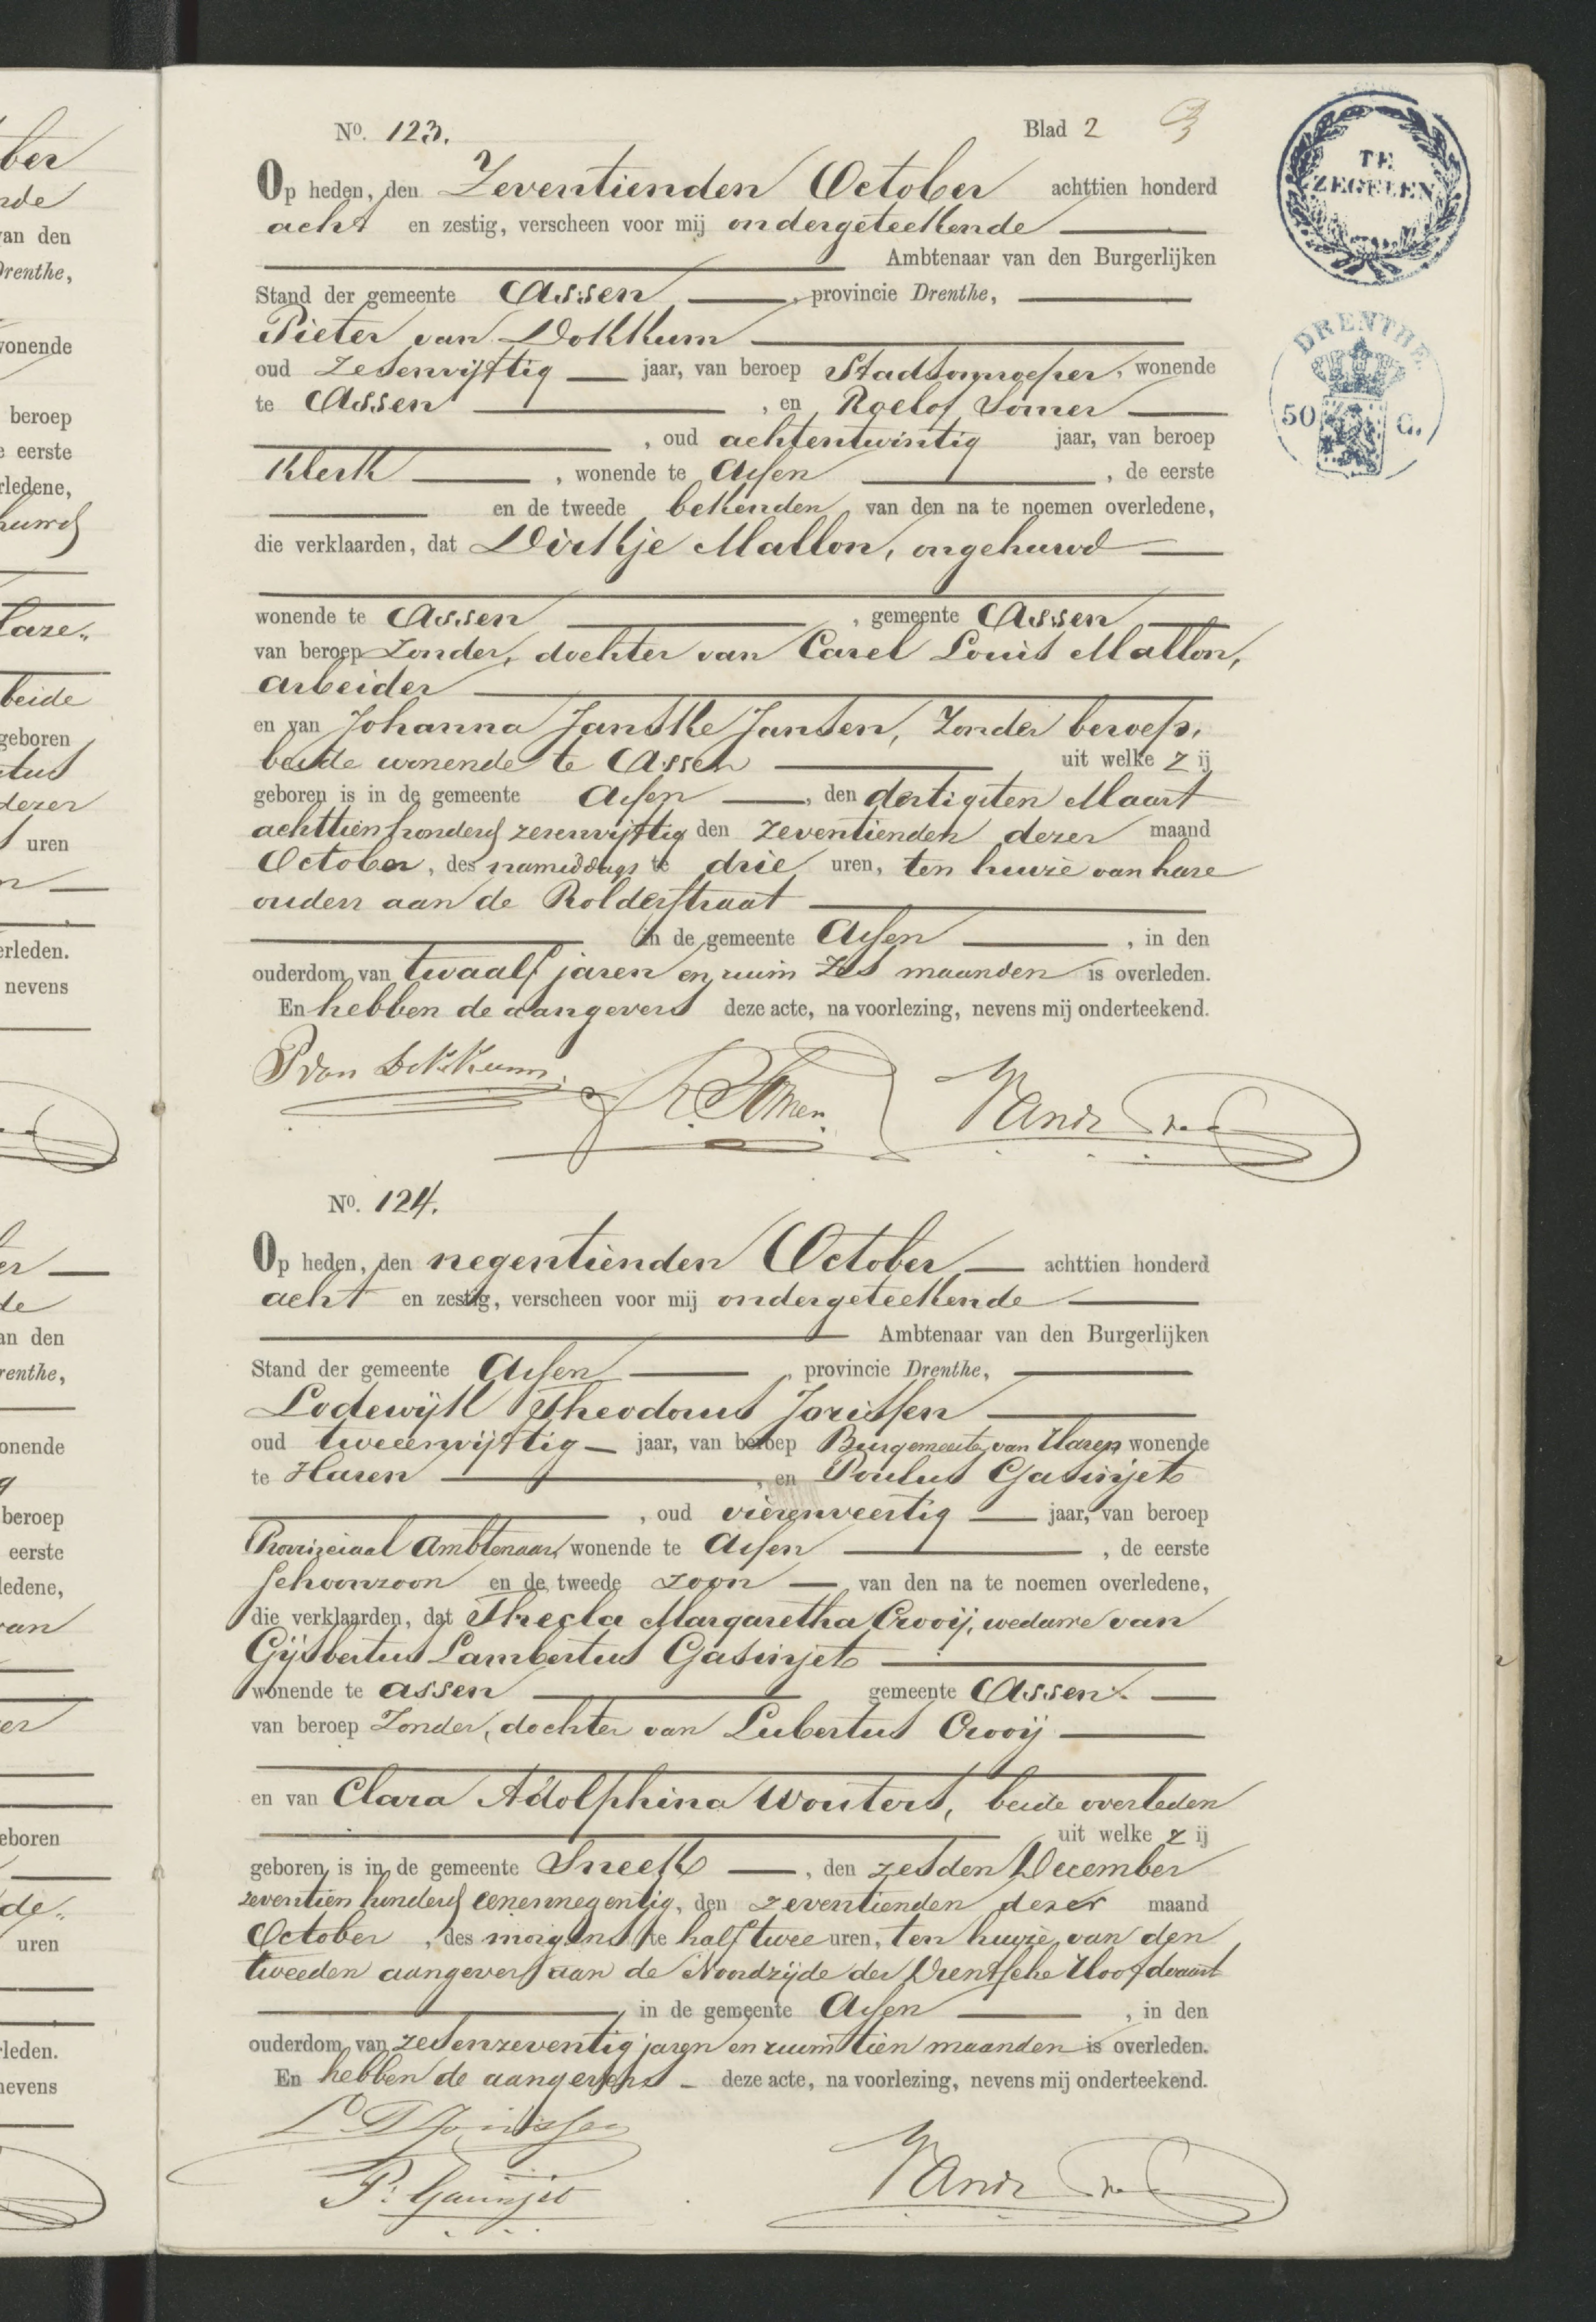 No. 123.
Blad 2
Op heden, den Zeventienden October achttien honderd
acht en zestig, verscheen voor mij ondergeteekende
Ambtenaar van den Burgerlijken
Stand der gemeente Assen, provincie Drenthe,
Pieter van Dokkum
oud Zesenvijftig jaar, van beroep Stadsomroeper, wonende
te Assen, en Roelof Somer
, oud achtentwintig jaar, van beroep
Klerk, wonende te Assen, de eerste
en de tweede bekenden van den na te noemen overledene,
die verklaarden, dat Dirkje Mallon, ongehuwd
wonende te Assen, gemeente Assen
van beroep Zonder, dochter van Carel Louis Mallon,
arbeider
en van Johanna Janske Jansen, Zonder beroep,
beide wonende te Assen uit welke z ij
geboren is in de gemeente Assen, den dertigsten Maart
achttienhonderd zesenvijftig den zeventienden dezer maand
October, des namiddags te drie uren, ten huize van hare
ouders aan de Rolderstraat
in de gemeente Assen, in den
ouderdom van twaalf jaren en ruim zes maanden is overleden.
En hebben de aangevers deze acte, na voorlezing, nevens mij onderteekend.
P van Dokkum.
TE
ZEGELEN
DRENTHE
50 C.
No. 124.
Op heden, den negentienden October achttien honderd
acht en zestig, verscheen voor mij ondergeteekende
Ambtenaar van den Burgerlijken
Stand der gemeente Assen, provincie Drenthe,
Lodewijk Theodorus Jorissen
oud tweeenvijftig jaar, van beroep Burgemeester van Haren wonende
te Haren, en Poulus Gasinjet
, oud vierenveertig jaar, van beroep
Provinciaal Ambtenaar, wonende te Assen, de eerste
schoonzoon en de tweede zoon van den na te noemen overledene,
die verklaarden, dat Thecla Margaretha Crooij, weduwe van
Gijsbertus Lambertus Gasinjet
wonende te assen gemeente Assen
van beroep Zonder, dochter van Lubertus Crooij
en van Clara Adolphina Wouters, beide overleden
uit welke z ij
geboren is in de gemeente Sneek, den zesden December
zeventien honderd eenennegentig, den zeventienden dezer maand
October, des morgens te half twee uren, ten huize van den
tweeden aangever aan de Noordzijde der Drentsche Hoofdvaart
in de gemeente Assen, in den
ouderdom van zesenzeventig jaren en ruim tien maanden is overleden.
En hebben de aangevers deze acte, na voorlezing, nevens mij onderteekend.
L T Jorissen
P. Gasinjet